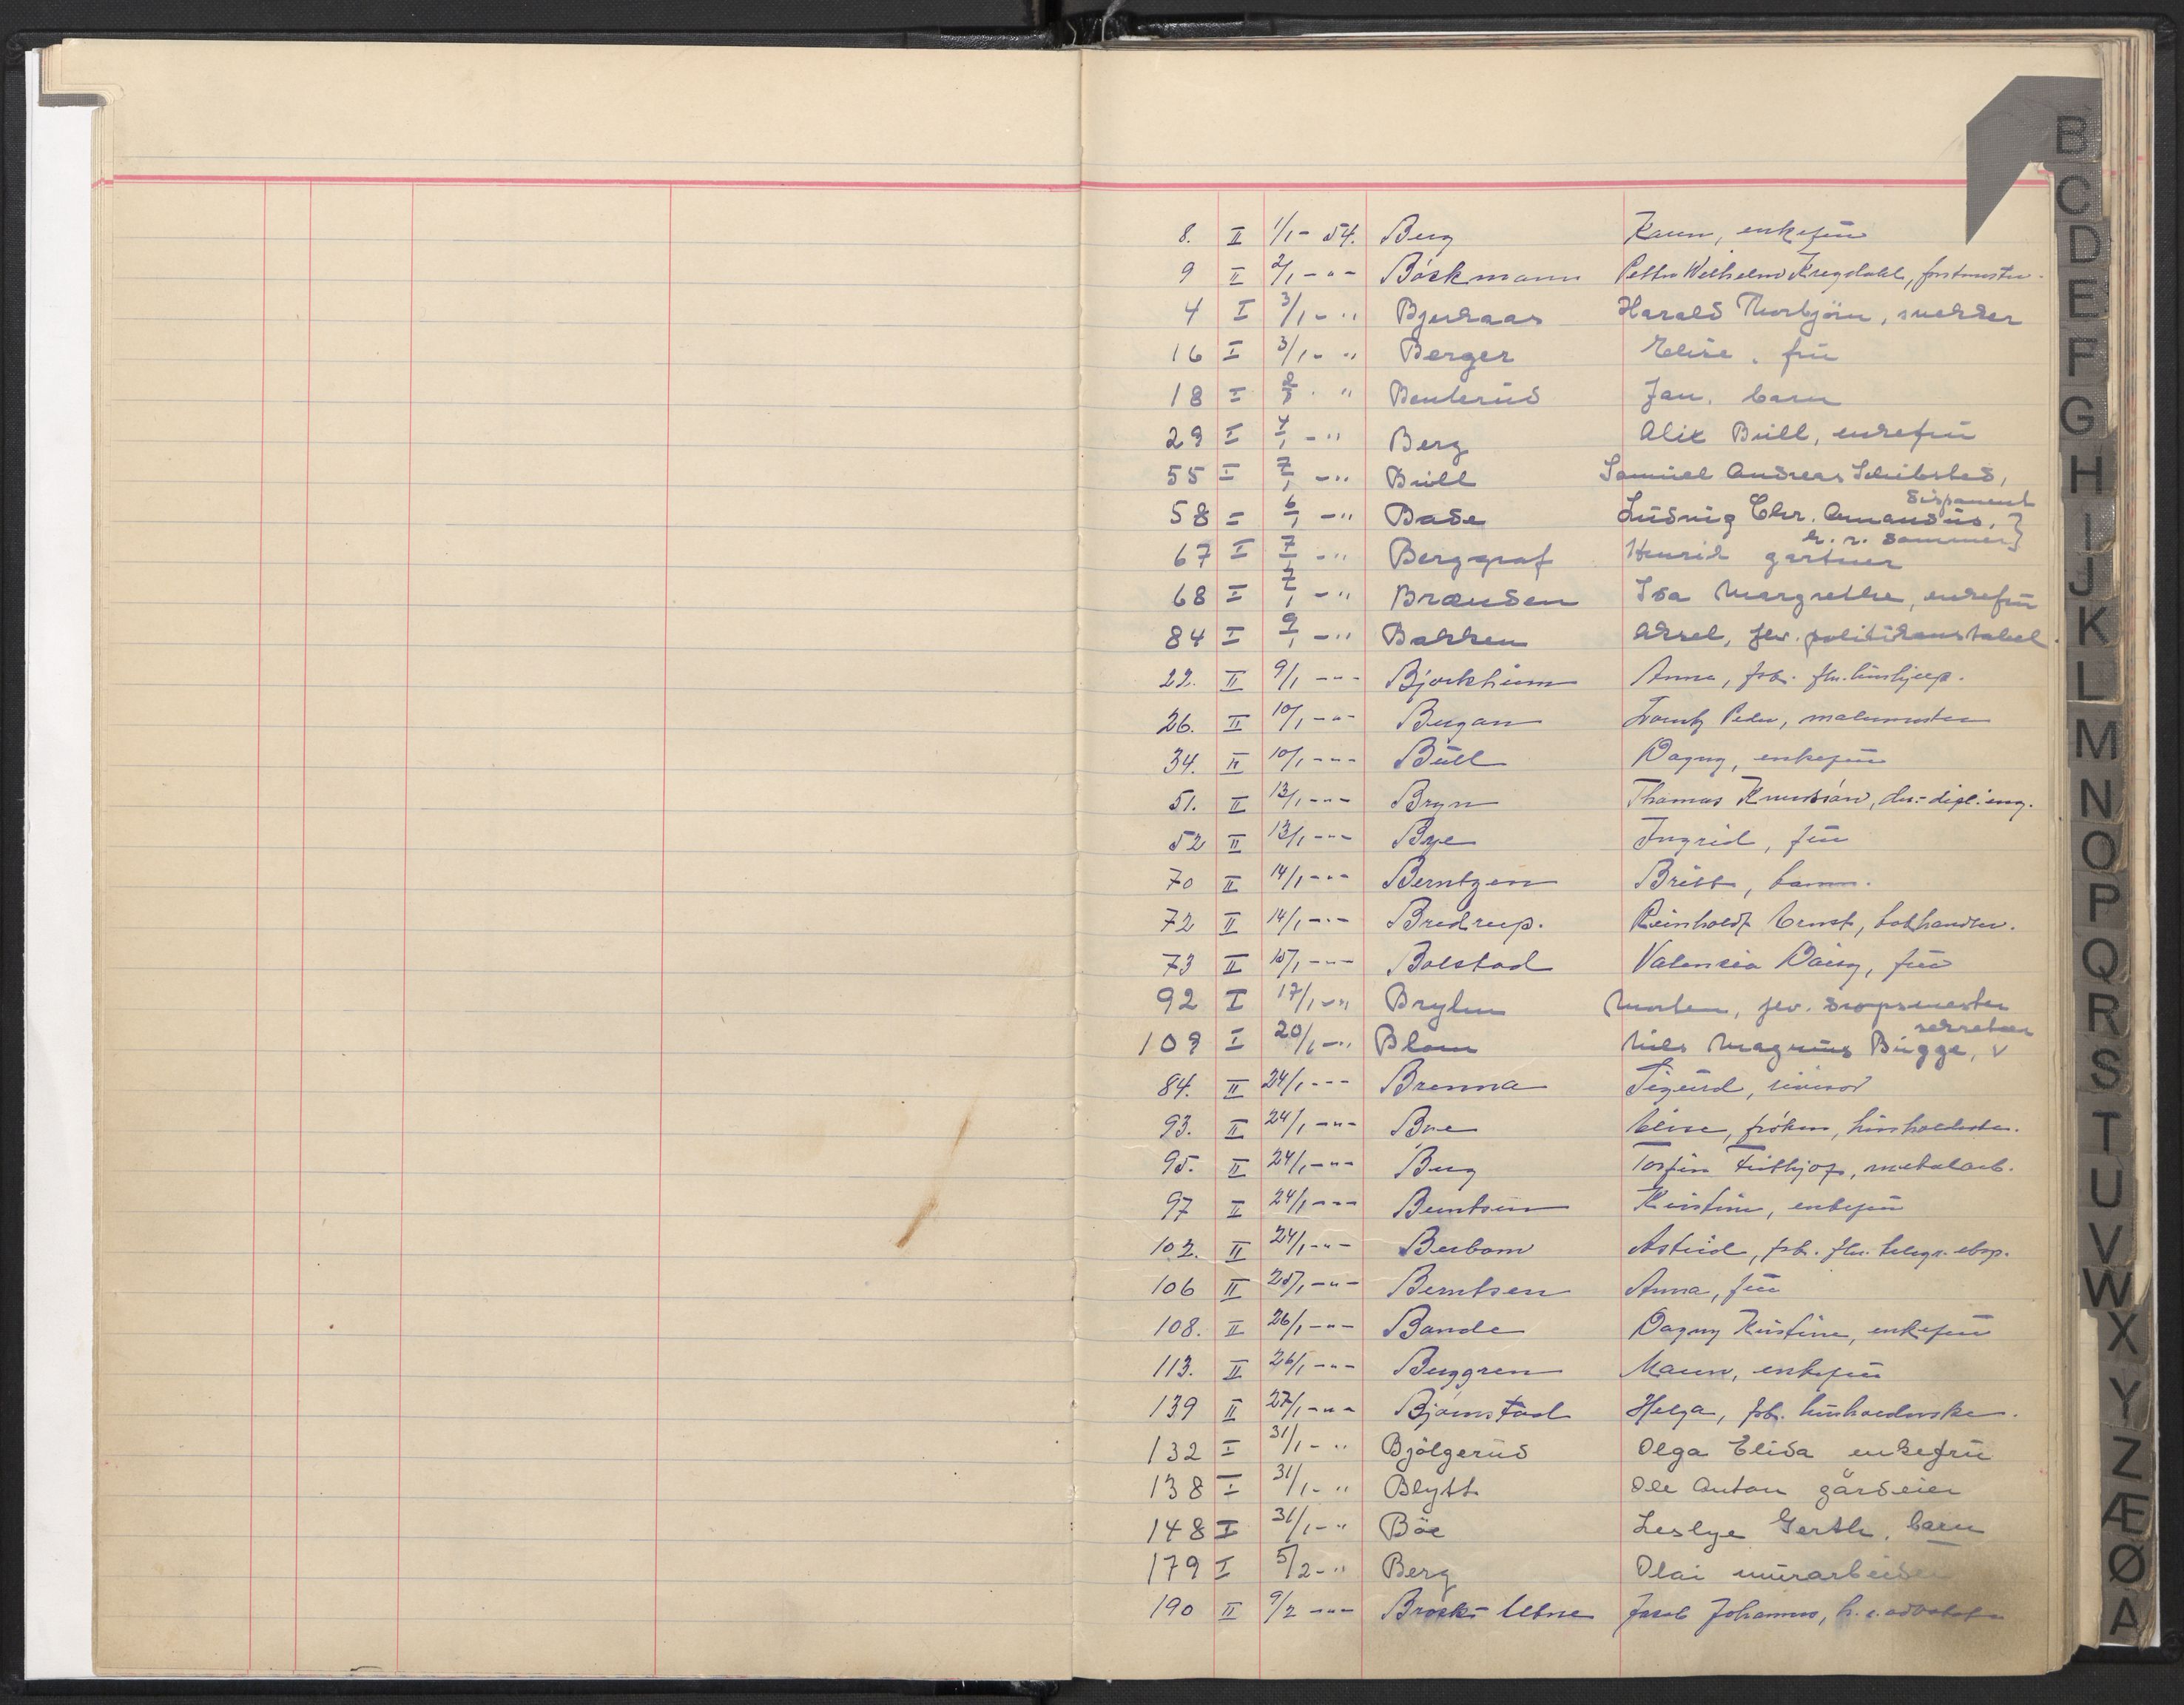 8. II 1/1 - 54. Berg Karen, enkefrü
9 II 2/1 - " - Böckmann Petter Wilhelm Kregdahl, forstmester
4 I 3/1 - " Bjerkaas Harald Thorbjörn, snekker
16 I 3/1 - " Berger Elise, frü
18 I " Benterüd Jan, barn
29 I 4/1 - " Berg Alix Büll, enkefrü
55 I 7/1 - " Büll Samüel Andreas Schibsted, disponent
58 I 6/1 - " Bade Lüdvig Chr. Amandüs, h. r. dommer
67 I 7/1 - " Berggraf Henrik gartner
68 I 7/1 - " Brænden Ida Margrethe, enkefrü
84 I 9/1 - " Bakken Aksel, fhv. politikonstabel.
22. II 9/1 - " - Bjorkheim Anna, frk. fhv. hüshjelp.
26. II 10/1 - " - Bergan Peder, malermester
34. II 10/1 - " - Büll Dagny, enkefrü
51. II 13/1 - " - Bryn Thomas dipl. eng.
52 II 13/1 - " - Bye Ingrid, frü
70 II 14/1 - " - Berntzen Britt, barn.
72 II 14/1 - " - Bredrup. Reinholdt Ernst, bokhandler.
73 II 15/1 - " - Bolstad Valencia Daisy, frü
92 I 17/1 - " Brylen Morten, fhv.
109 I 20/1 - " Blom Nils Magnüs Bügge, sekretær
84. II 24/1 - " - Brenna Sigürd, revisor
93. II 24/1 - " - Boe Elise, fröken, hüsholderske.
95. II 24/1 - " - Berg Torfinn Frithjof, metalarb.
97 II 24/1 - " - Berntsen Kristine, enkefrü
102. II 24/1 - " - Berbom Astrid, frk. fhv. telegr. eksp.
106 II 25/1 - " - Berntsen Anna, frü
108. II 26/1 - " - Bande Dagny Kristine, enkefrü
113. II 26/1 - " - Berggren Maren, enkefrü
139 II 27/1 - " - Björnstad Helga, frk. hüsholderske.
132 I 31/1 - " Bjölgerüd Olga Elida enkefrü
138 I 31/1 - " Blytt Ole Anton gårdeier
148 I 31/1 - " Böe Leslye Gerth, barn
179 I 5/2 - " Berg Olai mürarbeider
190 II 9/2 - " - Brock-Utne Jacob Johannes, h. r. advokat
B
C
D
E
F
G
H
I
J
K
L
M
N
O
P
Q
R
S
T
U
V
W
X
Y
Z
Æ
Ø
A